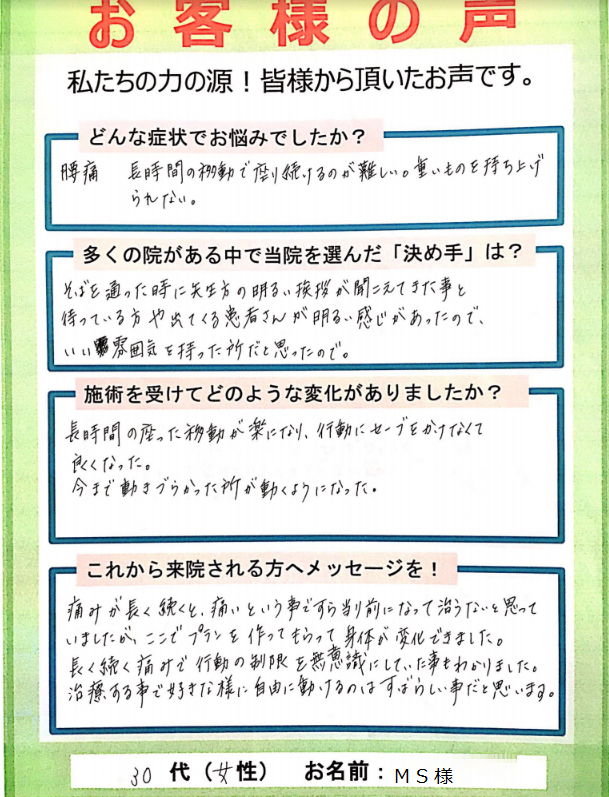 お客様の声
私たちの力の源！皆様から頂いたお声です。
どんな症状でお悩みでしたか？
腰痛　長時間の移動で座り続けるのが難しい。重いものを持ち上げ
られない。
多くの院がある中で当院を選んだ「決め手」は？
そばを通った時に先生方の明るい挨拶が聞こえてきた事と
待っている方や出てくる患者さんが明るい感じがあったので、
いい雰囲気を持った所だと思ったので。
施術を受けてどのような変化がありましたか？
長時間の座った移動が楽になり、行動にセーブをかけなくて
良くなった。
今まで動きづらかった所が動くようになった。
これから来院される方へメッセージを！
痛みが長く続くと、痛いという事ですら当り前になって治らないと思って
いましたが、ここでプランを作ってもらって身体が変化できました。
長く続く痛みで行動の制限を無意識にしていた事もわかりました。
治療する事で好きな様に自由に動けるのはすばらしい事だと思います。
30 代（女性）　お名前：ＭＳ様